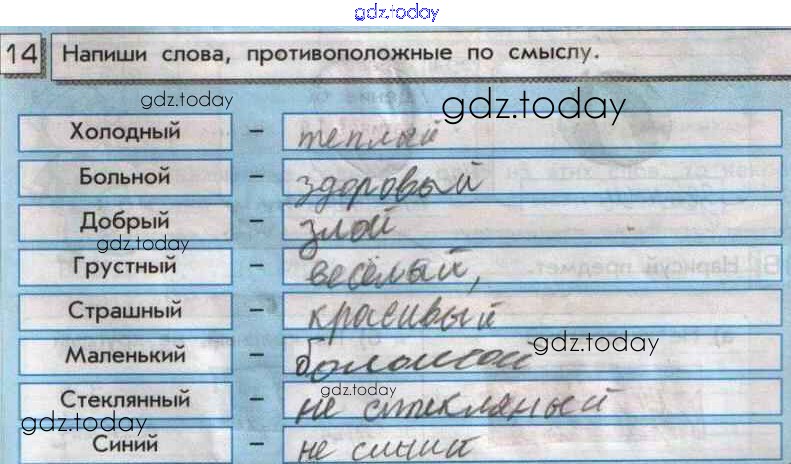 gdz.today
14 Напиши слова, противоположные по смыслу.
gdz.today
gdz.today
Холодный – теплый
Больной – здоровый
Добрый – злой
gdz.today
Грустный – весёлый,
Страшный – красивый
Маленький – большой
gdz.today
gdz.today
Стеклянный – не стекляный
gdz.today
Синий – не синий